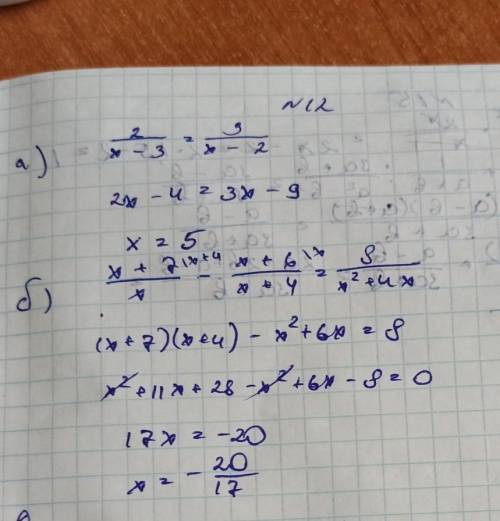 №12
а) 2/(x - 3) = 3/(x - 2)
2x - 4 = 3x - 9
x = 5
б) (x + 7)/x |x+4 - (x + 6)/(x + 4) |x = 8/(x² + 4x)
(x + 7)(x + 4) - x² + 6x = 8
x² + 11x + 28 - x² + 6x - 8 = 0
17x = -20
x = - 20/17